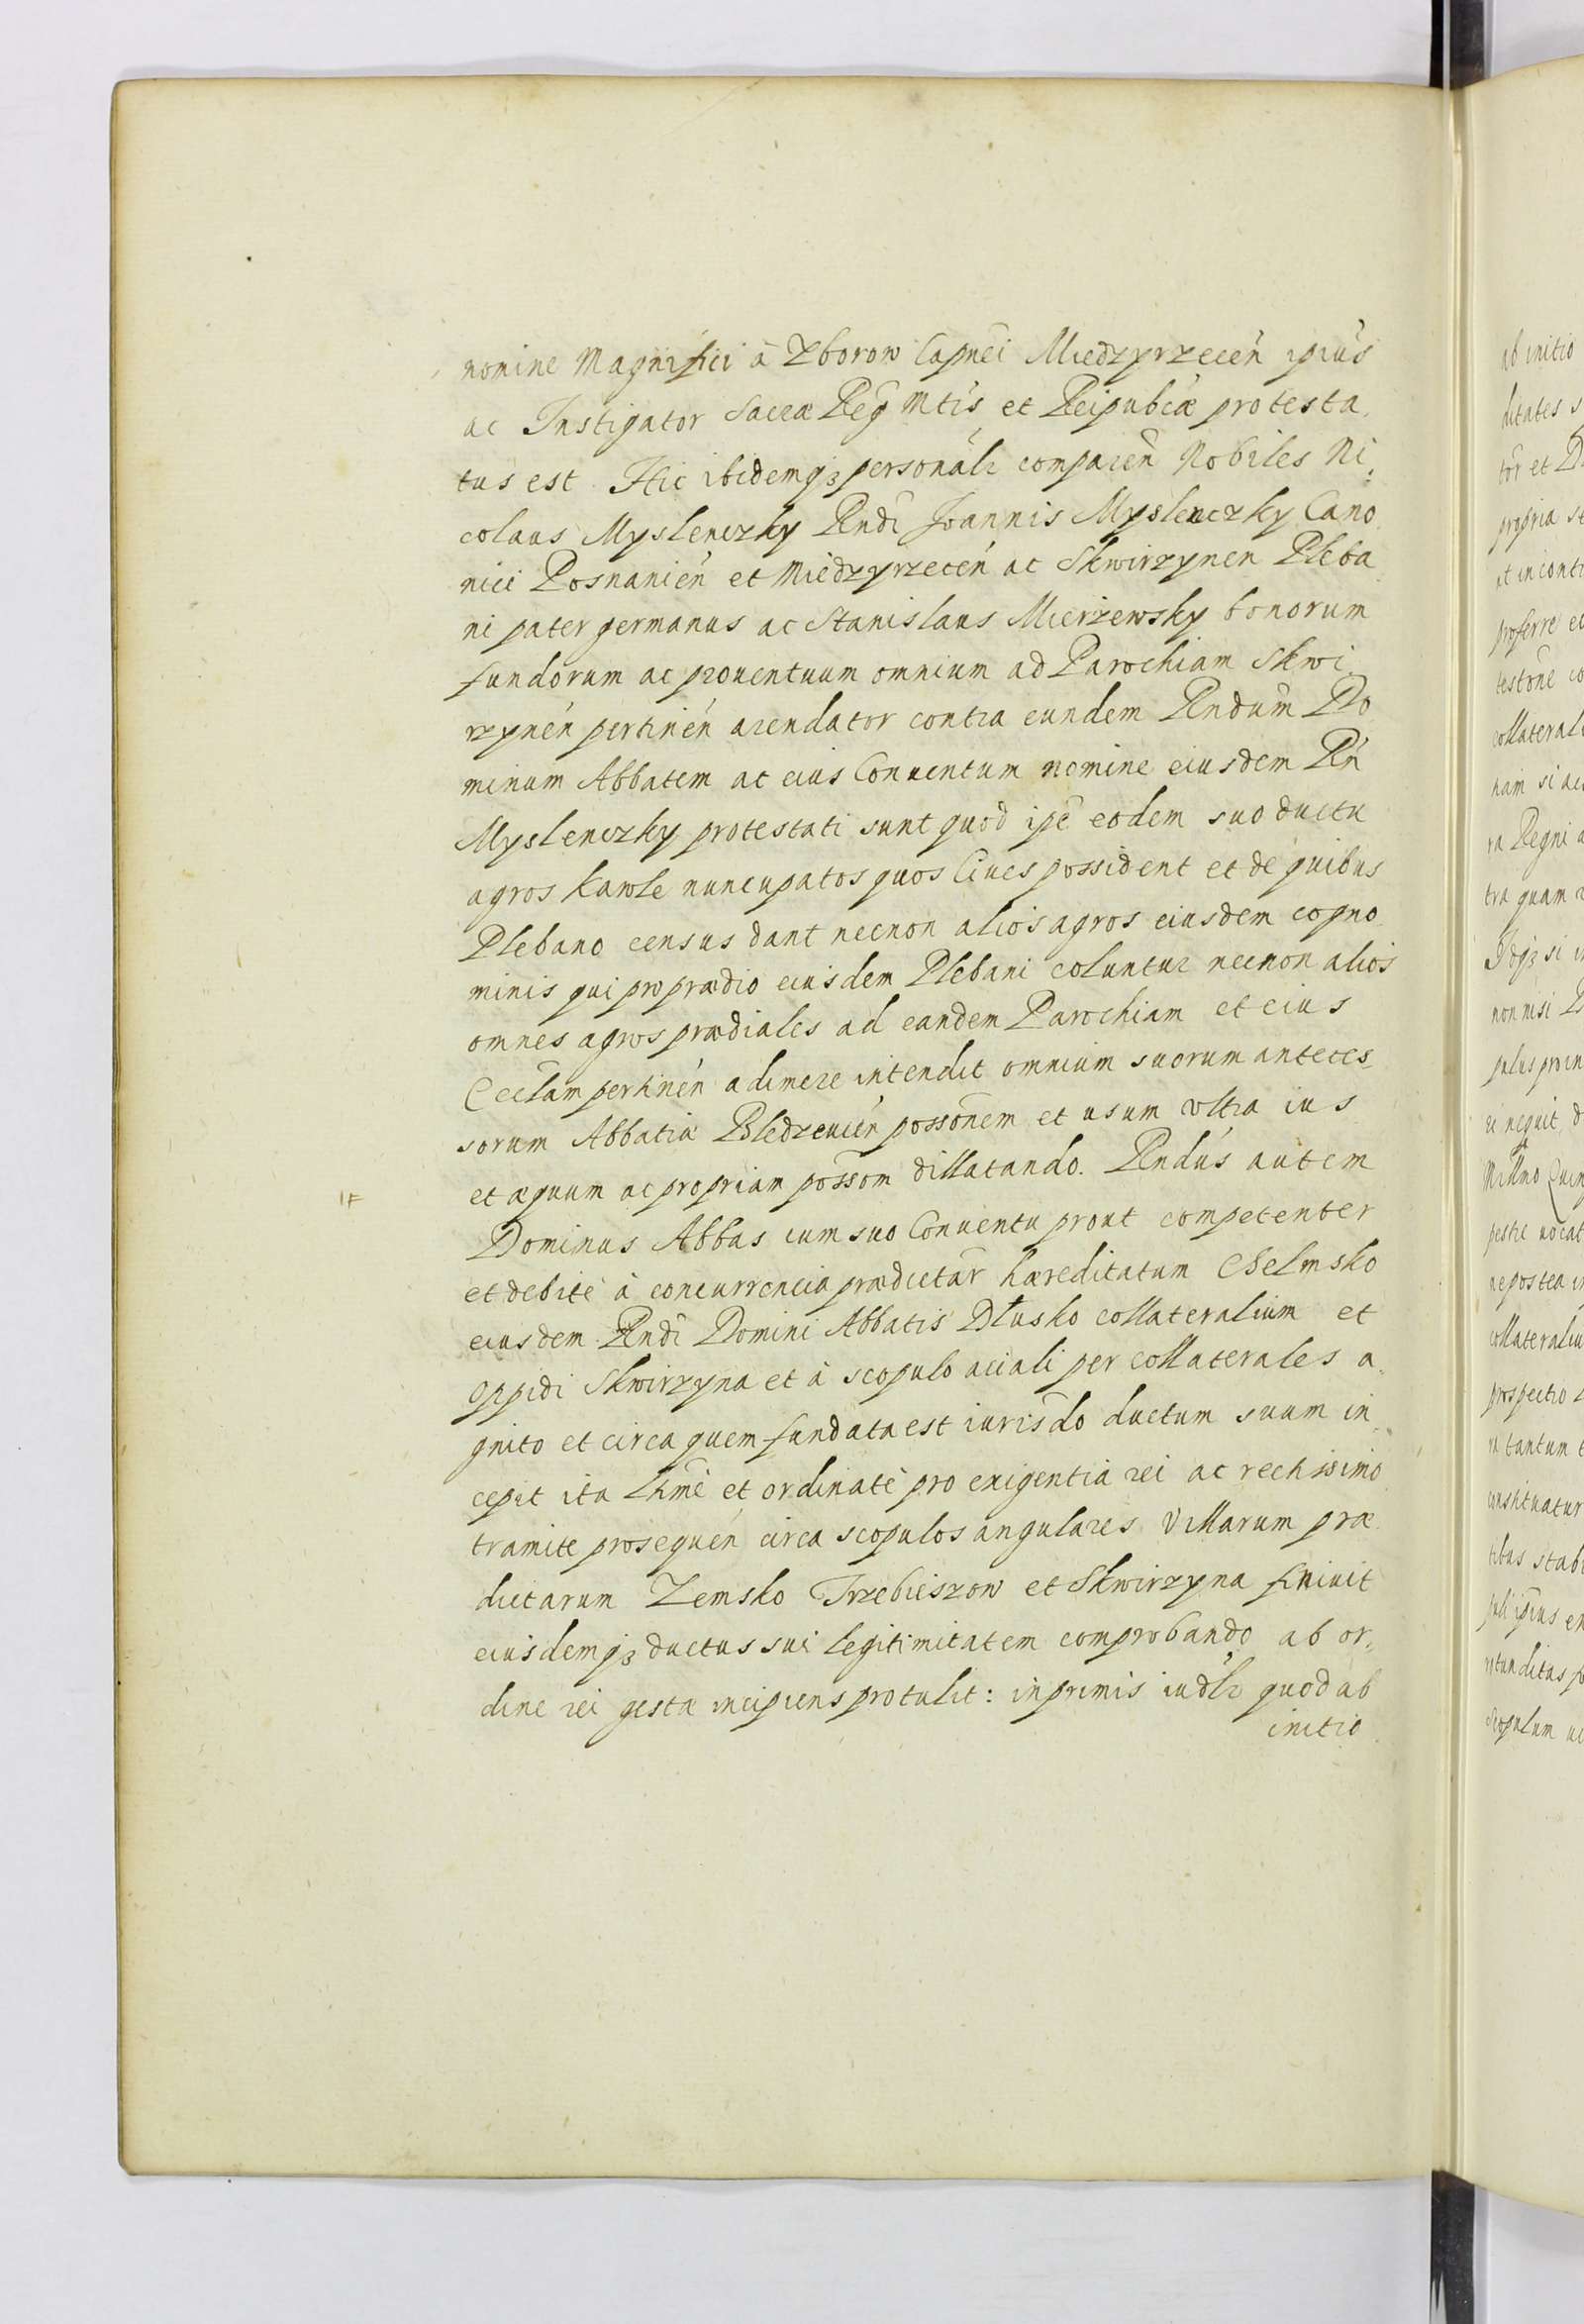 nomine Magnifici à Zborow Capnei Miedzyrzecen ipius
ac Instigator Sacræ Reg Mtis et Reipubcæ protesta,
tus est. Hic ibidemqз personalr comparen Nobiles Ni,
colaus Myslenczky Rndi Joannis Myslenczky Cano,
nici Posnanien et Miedzyrzecen ac Skwirzynen Pleba,
ni pater germanus ac Stanislaus Mierzewsky bonorum
fundorum ac prouentuum omnium ad Parochiam Skwi,
rzynen pertinen arendator contra eundem Rndum Do
minum Abbatem ac eius Conuentum nomine eiusdem Rn
Myslenczky protestati sunt quod ipe eodem suo ductu
agros Kawle nuncupatos quos Ciues possident et de quibus
Plebano census dant necnon alios agros eiusdem cogno,
minis qui pro prædio eiusdem Plebani coluntur necnon alios
omnes agros prædiales ad eandem Parochiam et eius
Ecclam pertinen adimere intendit omnium suorum anteces,
sorum Abbatia Bledzeuien possonem et usum vltra ius
et æquum ac propriam possom dillatando. Rndus autem
Dominus Abbas cum suo Conuentu prout competenter
et debitè à concurrencia prædictar hæreditatum Chelmsko
eiusdem Rndi Domini Abbatis Dłusko collateralium et
oppidi Skwirzyna et à scopulo aciali per collaterales a,
gnito et circa quem fundata est iurisdo ductum suum in,
cepit ita lrimè et ordinatè pro exigentia rei ac rectissimo
tramite prosequen circa scopulos angulares Villarum præ,
dictarum Zemsko Trzebiszow et Skwirzyna finiuit
eiusdemqз ductus sui legitimitatem comprobando ab or,
dine rei gestæ incipiens protulit: inprimis iudlr quod ab
initio